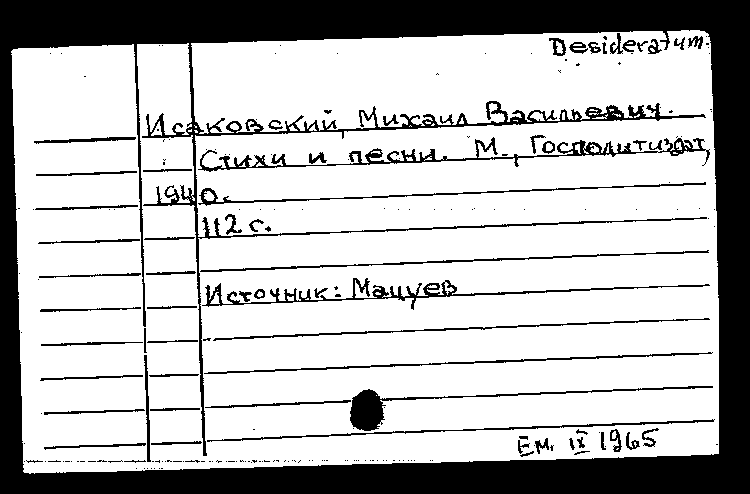 Desideratum.
Исаковский, Михаил Васильевич.
Стихи и песни. М., Госполитиздат,
1940.
112 с.
Источник: Мацуев
Ем. IX 1965